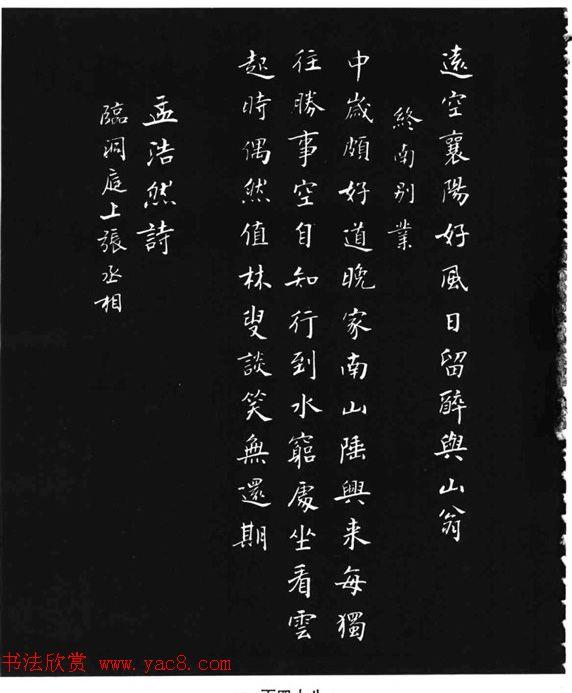 遠空襄陽好風日留醉與山翁
終南别業
中歲頗好道晚家南山陲興来每獨
往勝事空自知行到水窮處坐看雲
起時偶然值林叟談笑無還期
孟浩然詩
臨洞庭上張丞相
书法欣赏 www.yac8.com